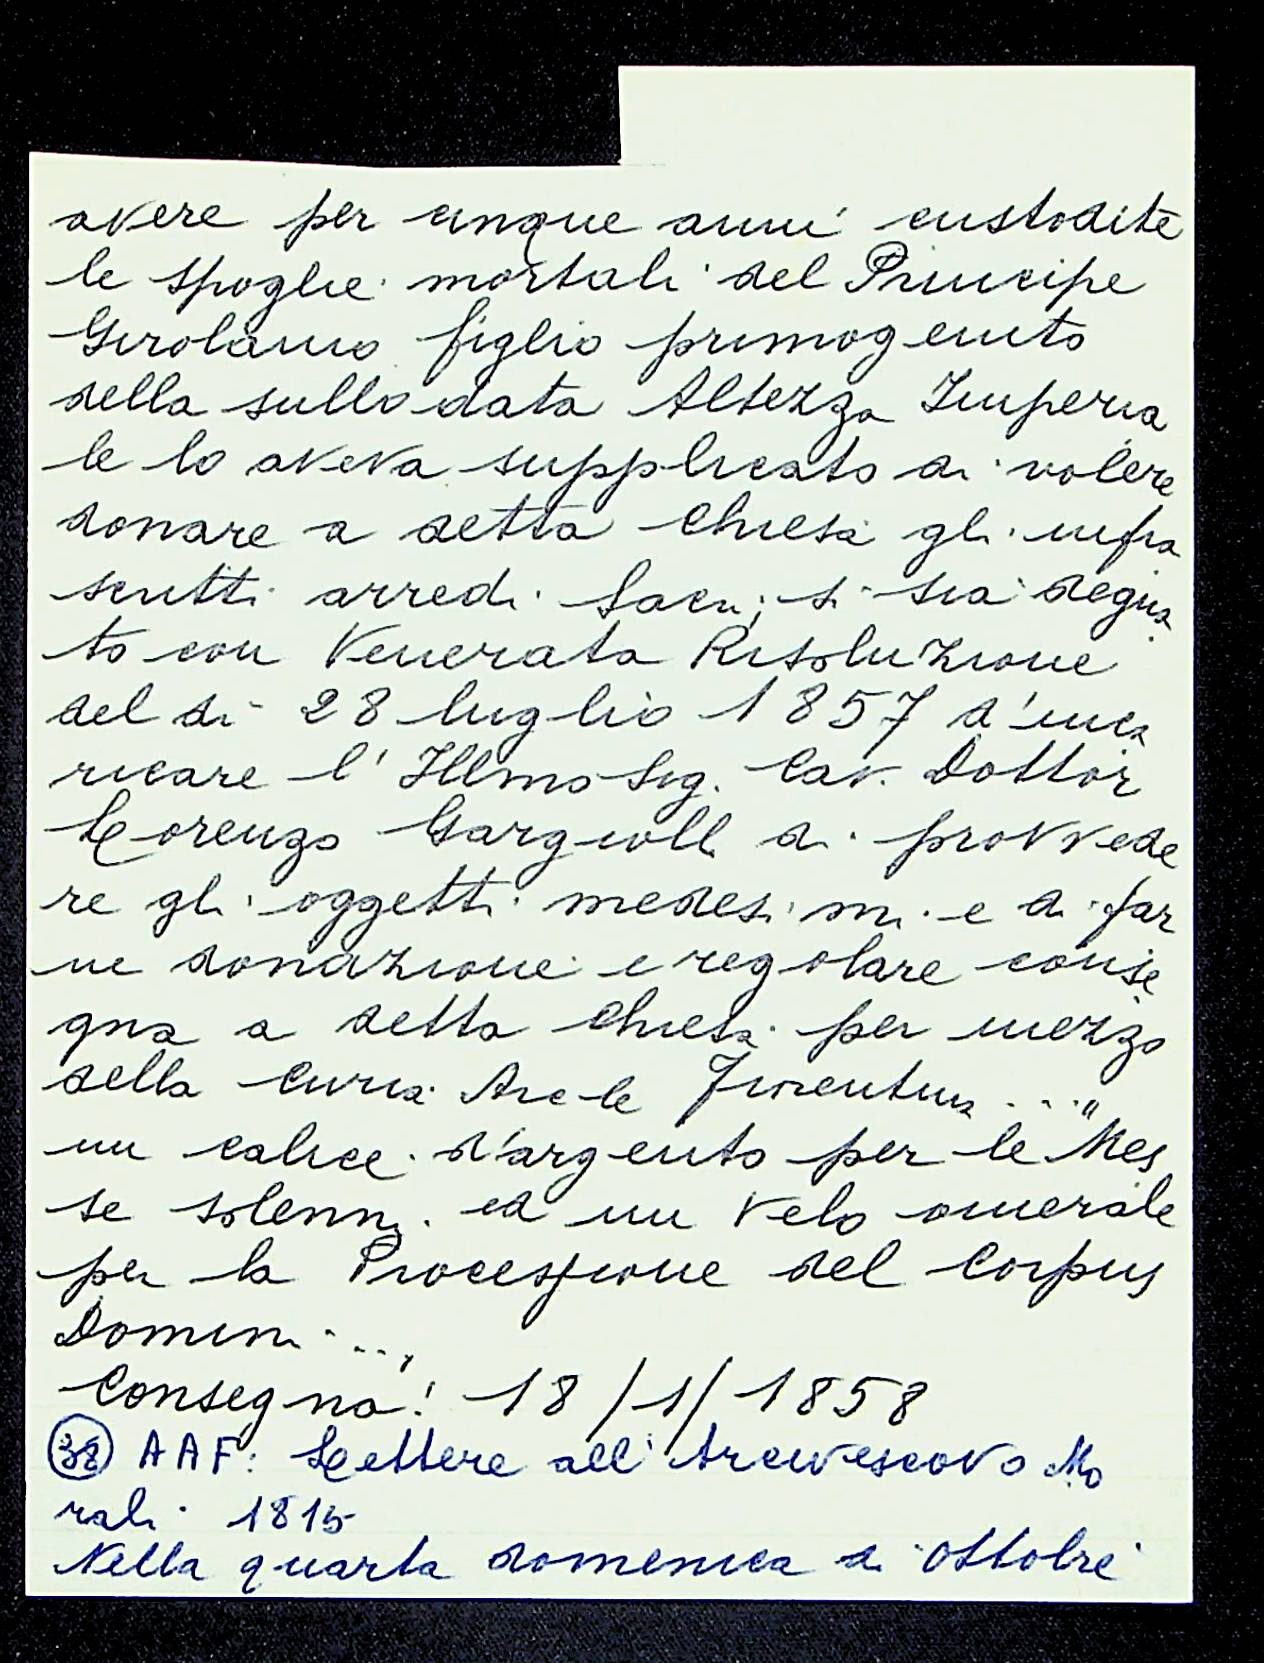 avere per cinque anni custodite
le spoglie mortali del Principe
Girolamo figlio primogenito
della sullodata Altezza Imperia
le lo aveva supplicato di volere
donare a detta Chiesa gli infra
scritti arredi Sacri, si sia degna
to con Venerata Risoluzione
del dì 28 luglio 1857 d'inca
ricare l'Illmo Sig. Cav. Dottor
Lorenzo Gargiolli di provvede
re gli oggetti medesimi e di far
ne donazione e regolare conse
gna a detta Chiesa per mezzo
della Curia Arcle Fiorentina ...."
un calice d'argento per le Mes
se solenni ed un Velo omerale
per la Processione del Corpus
Domini ...,
Consegna: 18/1/1858
38 AAF: Lettere all'Arcivescovo Mo
rali 1815
Nella quarta domenica di Ottobre